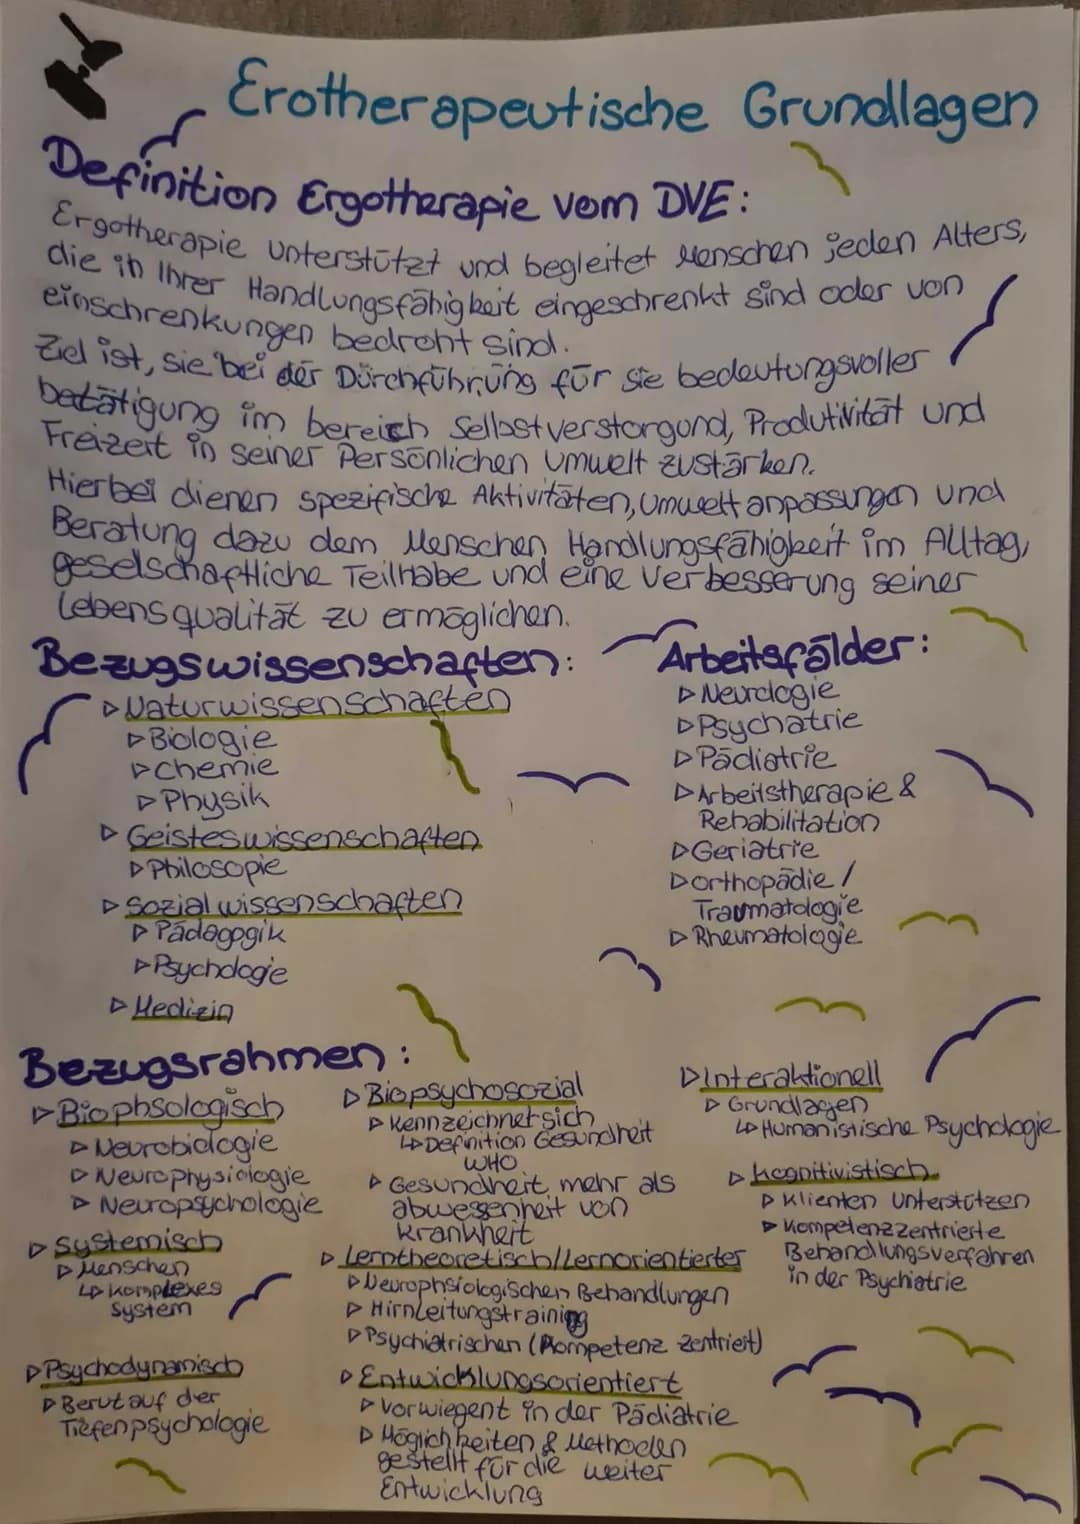 Erotherapeutische Grundlagen
Definition Ergotherapie vom DVE:
Ergotherapie unterstützt und begleitet Menschen jeden Alters,
die in Ihrer Handlungsfähigkeit eingeschrenkt sind oder von
einschrenkungen bedroht sind.
Ziel ist, sie bei der Dürchführung für sie bedeutungsvoller
betätigung im bereich Selbstverstorgund, Produtivität und
Freizeit in seiner Persönlichen Umwelt zustärken.
Hierbei dienen spezifische Aktivitäten, Umweltanpassungen und
Beratung dazu dem Menschen Handlungsfähigkeit im Alltag,
geselschaftliche Teilhabe und eine Verbesserung seiner
Lebensqualität zu ermöglichen.
Bezugswissenschaften:
▷ Naturwissenschaften
▷ Biologie
▷ Chemie
▷ Physik
▷ Geisteswissenschaften
▷ Philosopie
▷ Sozialwissenschaften
▷ Pädagogik
▷ Psychologie
▷ Medizin
Arbeitsfälder:
▷ Neurologie
▷ Psychatrie
▷ Pädiatrie
▷ Arbeitstherapie &
Rehabilitation
▷ Geriatrie
▷ Orthopädie /
Traumatologie
▷ Rheumatologie
Bezugsrahmen:
▷ Biophsologisch
▷ Neurobiologie
▷ Neurophysiologie
▷ Neuropsychologie
▷ Systemisch
▷ Menschen
↳ Komplexes
System
▷ Psychodynamisch
▷ Berut auf der
Tiefenpsychologie
▷ Biopsychosozial
▷ Kennzeichnet sich
↳ Definition Gesundheit
WHO
▷ Gesundheit mehr als
abwesenheit von
Krankheit
▷ Lerntheoretisch/Lernorientierter
▷ Neurophsiologischen Behandlungen
▷ Hirnleitungstraining
▷ Psychiatrischen (Kompetenz zentriert)
▷ Entwicklungsorientiert
▷ Vorwiegent in der Pädiatrie
▷ Möglichkeiten & Methoden
gestellt für die weiter
Entwicklung
▷ Interaktionell
▷ Grundlagen
↳ Humanistische Psychologie
▷ Kognitivistisch
▷ Klienten Unterstützen
▷ Kompetenzzentrierte
Behandlungsverfahren
in der Psychiatrie